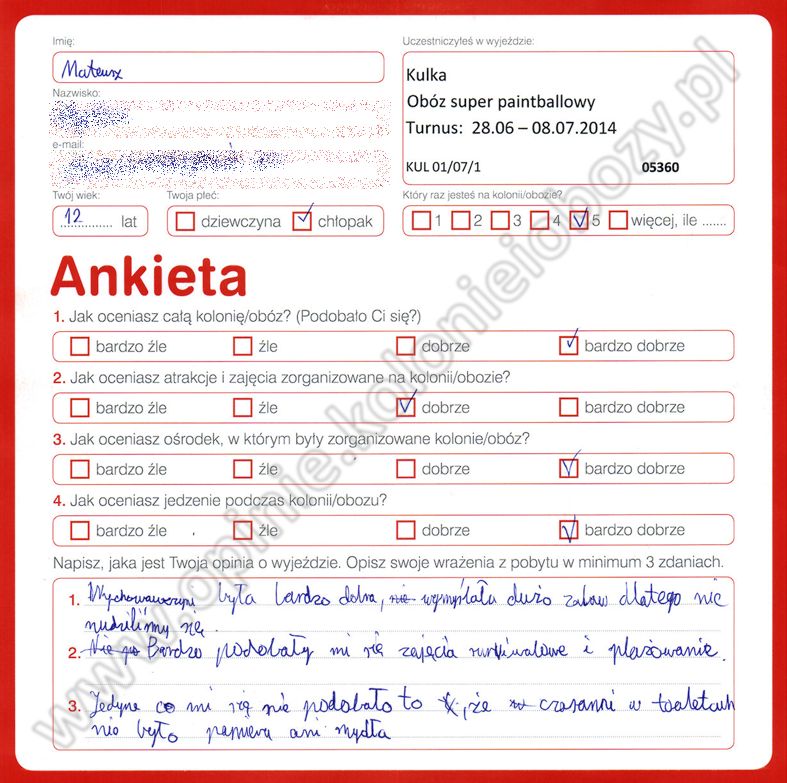 Imię:
Mateusz
Uczestniczyłeś w wyjeździe:
Kulka
Obóz super paintballowy
Turnus: 28.06 – 08.07.2014
KUL 01/07/1 05360
Nazwisko:
e-mail:
Twój wiek:
12 lat
Twoja płeć:
dziewczyna chłopak
Który raz jesteś na kolonii/obozie?
1 2 3 4 5 więcej, ile .......
Ankieta
1. Jak oceniasz całą kolonię/obóz? (Podobało Ci się?)
bardzo źle źle dobrze bardzo dobrze
2. Jak oceniasz atrakcje i zajęcia zorganizowane na kolonii/obozie?
bardzo źle źle dobrze bardzo dobrze
3. Jak oceniasz ośrodek, w którym były zorganizowane kolonie/obóz?
bardzo źle źle dobrze bardzo dobrze
4. Jak oceniasz jedzenie podczas kolonii/obozu?
bardzo źle źle dobrze bardzo dobrze
Napisz, jaka jest Twoja opinia o wyjeździe. Opisz swoje wrażenia z pobytu w minimum 3 zdaniach.
1. była bardzo dobra, nie wymyślała dużo zabaw dlatego nie
nudziliśmy się.
2. Bardzo podobały mi się zajęcia i plażowanie.
3. Jedyne co mi się nie podobało to , że czasami w toaletach
nie było papieru ani mydła
www.opinie.kolonieiobozy.pl